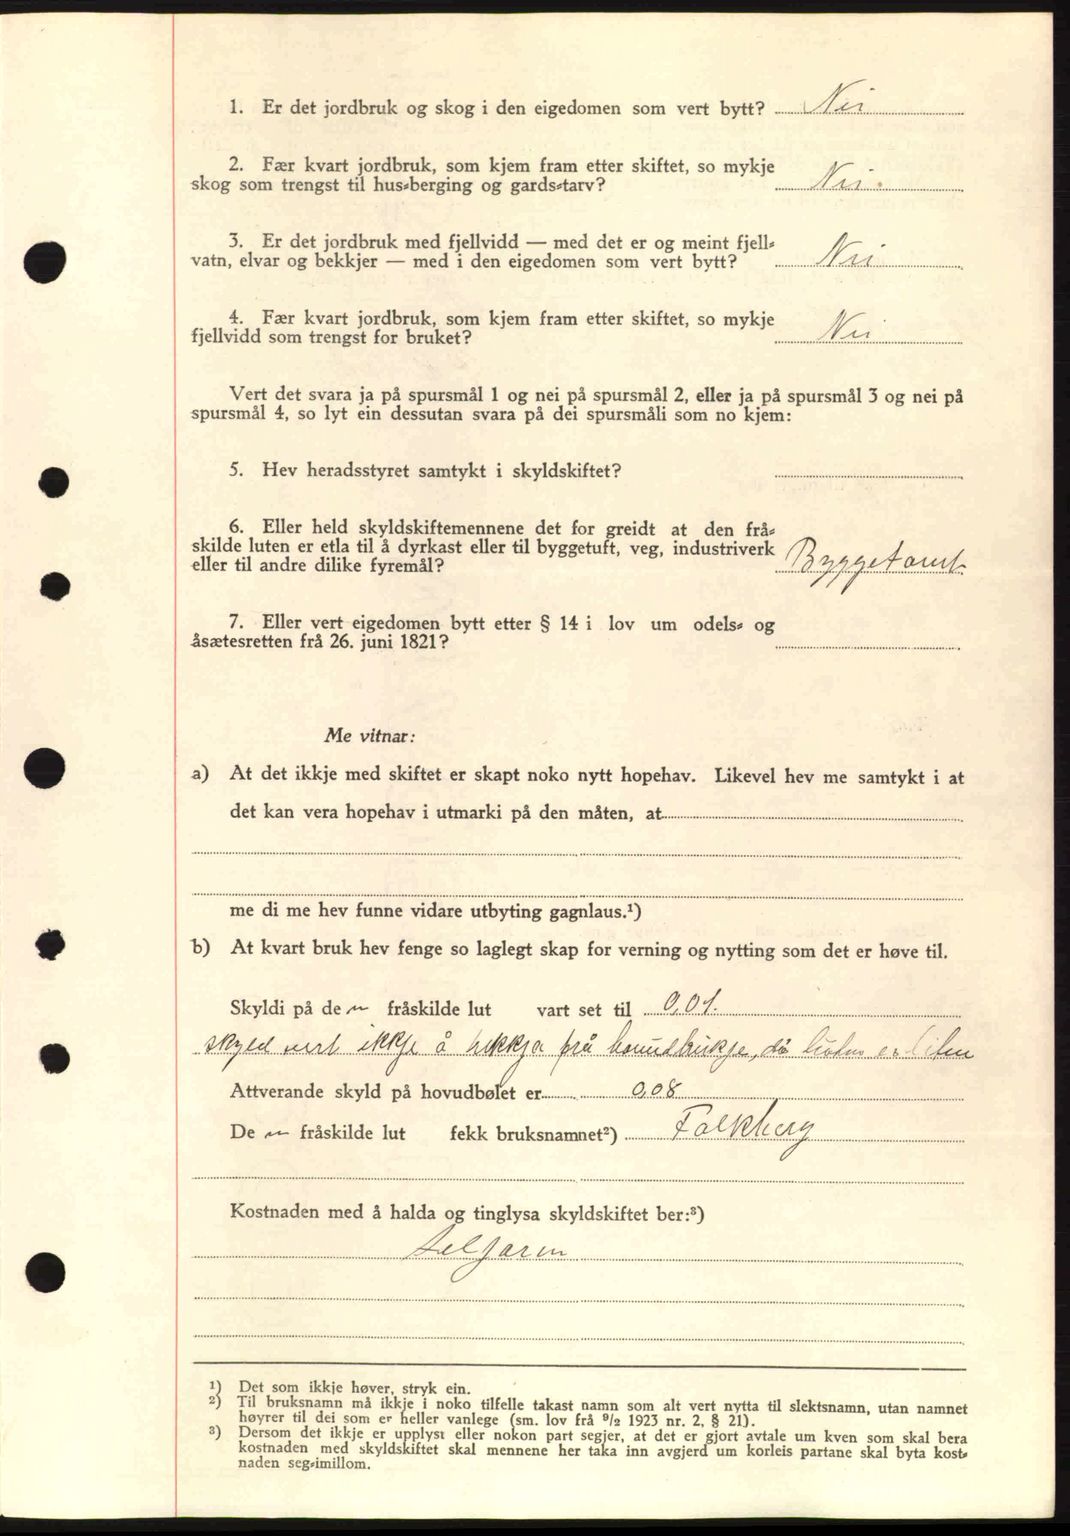 1. Er det jordbruk og skog i den eigedomen som vert bytt? Nei
2. Fær kvart jordbruk, som kjem fram etter skiftet, so mykje
skog som trengst til hus-berging og gards-tarv? Nei.
3. Er det jordbruk med fjellvidd — med det er og meint fjell-
vatn, elvar og bekkjer — med i den eigedomen som vert bytt? Nei
4. Fær kvart jordbruk, som kjem fram etter skiftet, so mykje
fjellvidd som trengst for bruket? Nei
Vert det svara ja på spursmål 1 og nei på spursmål 2, eller ja på spursmål 3 og nei på
spursmål 4, so lyt ein dessutan svara på dei spursmåli som no kjem:
5. Hev heradsstyret samtykt i skyldskiftet?
6. Eller held skyldskiftemennene det for greidt at den frå-
skilde luten er etla til å dyrkast eller til byggetuft, veg, industriverk
eller til andre dilike fyremål? Byggetomt
7. Eller vert eigedomen bytt etter § 14 i lov um odels- og
åsætesretten frå 26. juni 1821?
Me vitnar:
a) At det ikkje med skiftet er skapt noko nytt hopehav. Likevel hev me samtykt i at
det kan vera hopehav i utmarki på den måten, at
me di me hev funne vidare utbyting gagnlaus.¹)
b) At kvart bruk hev fenge so laglegt skap for verning og nytting som det er høve til.
Skyldi på de n fråskilde lut vart set til 0,01.
skyld vert ikkje å trekkja frå hovudbrukje, då luten er liten
Attverande skyld på hovudbølet er 0,08
De n fråskilde lut fekk bruksnamnet²) Falkberg
Kostnaden med å halda og tinglysa skyldskiftet ber:³)
Seljaren
¹) Det som ikkje høver, stryk ein.
²) Til bruksnamn må ikkje i noko tilfelle takast namn som alt vert nytta til slektsnamn, utan namnet
høyrer til dei som er heller vanlege (sm. lov frå ⁹/₂ 1923 nr. 2, § 21).
³) Dersom det ikkje er upplyst eller nokon part segjer, at det er gjort avtale um kven som skal bera
kostnaden med skyldskiftet skal mennene her taka inn avgjerd um korleis partane skal byta kost-
naden seg-imillom.